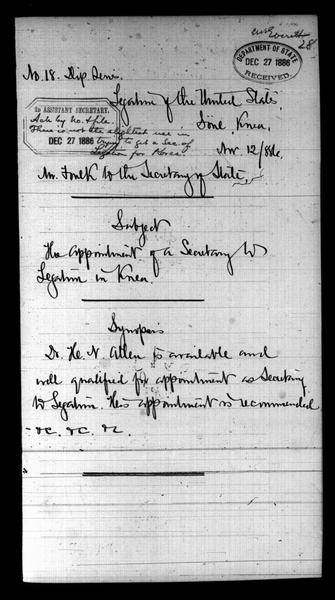 Mr Everett
28
DEPARTMENT OF STATE
DEC 27 1886
RECEIVED
No. 18. Dip. Series.
Legation of the United States,
Söul, Korea,
Nov. 12/86.
To ASSISTANT SECRETARY.
Ack by No. & file
There is not the slightest use in
DEC 27 1886
trying to get a Sec of
Legation for Korea.
Mr. Foulk to the Secretary of State.
Subject
The appointment of a Secretary to
Legation in Korea.
Synopsis
Dr. H. N. Allen is available and
well qualified for appointment as Secretary
to Legation. His appointment is recommended
&c. &c. &c.